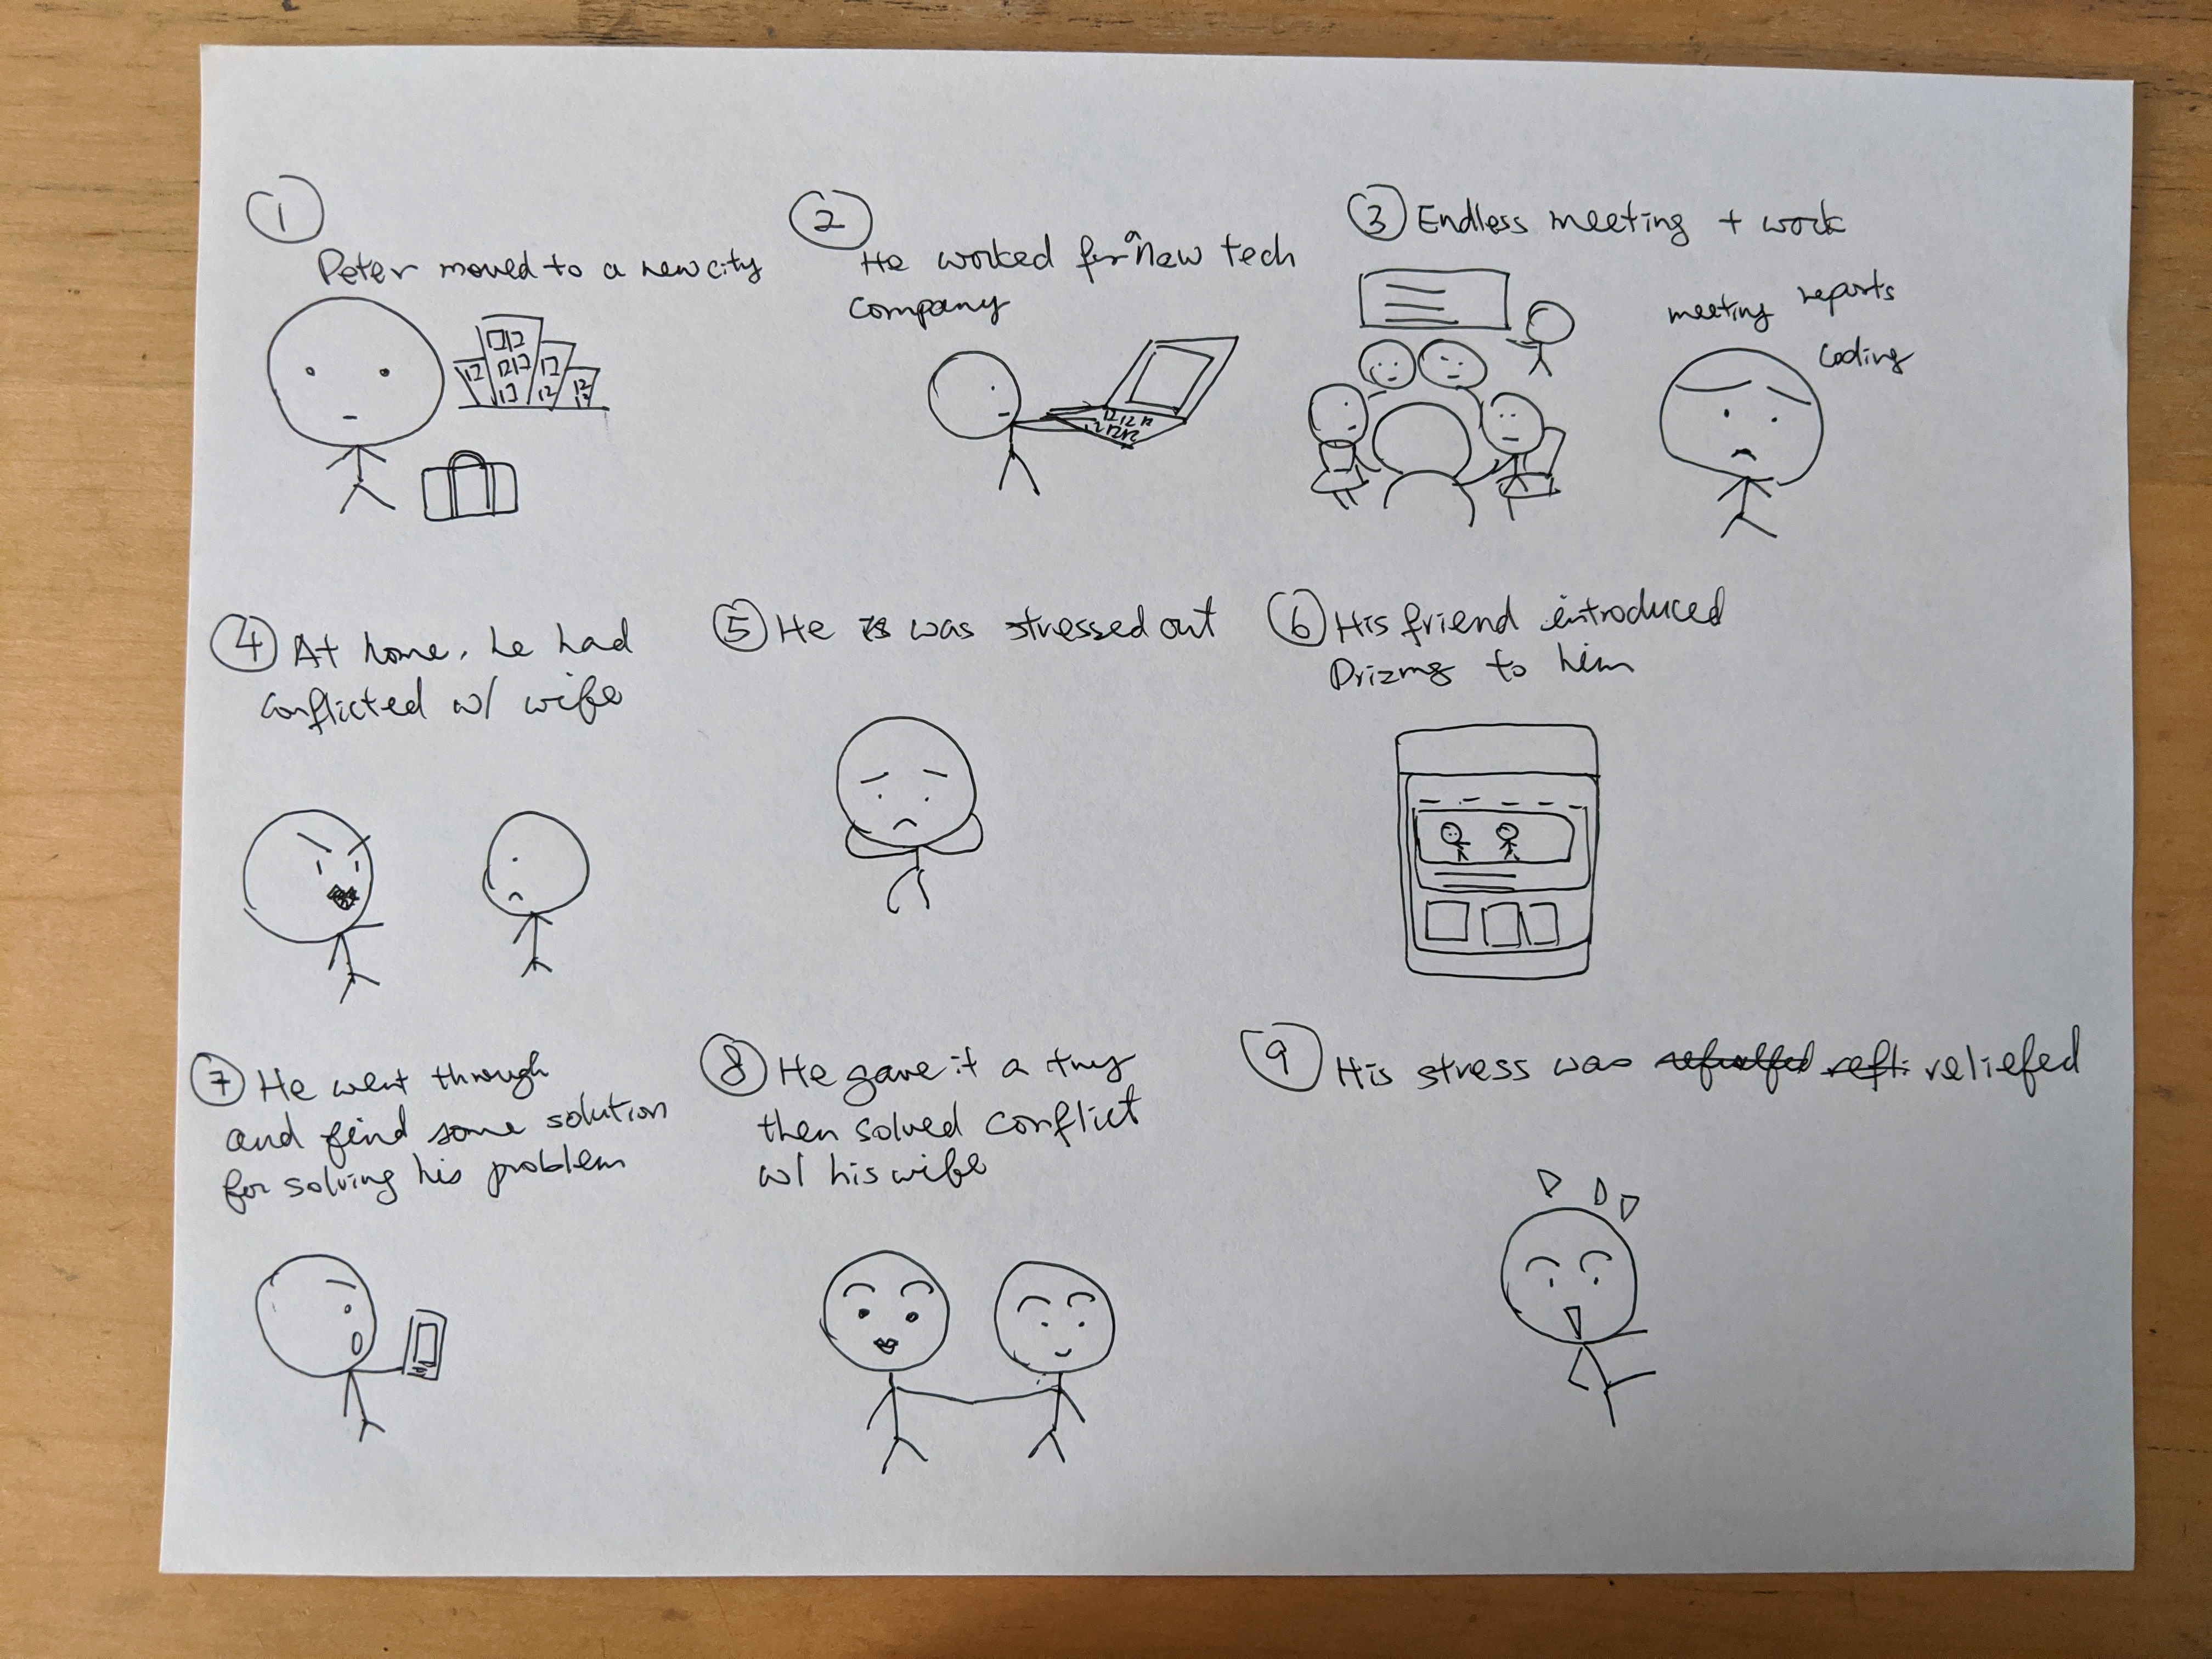 ①
Peter moved to a new city
②
He worked for a new tech
company
③ Endless meeting + work
meeting reports
coding
④ At home, he had
conflicted w/ wife
⑤ He is was stressed out
⑥ His friend introduced
to him
⑦ He went through
and find some solution
for solving his problem
⑧ He gave it a try
then solved conflict
w/ his wife
⑨ His stress was reliefed